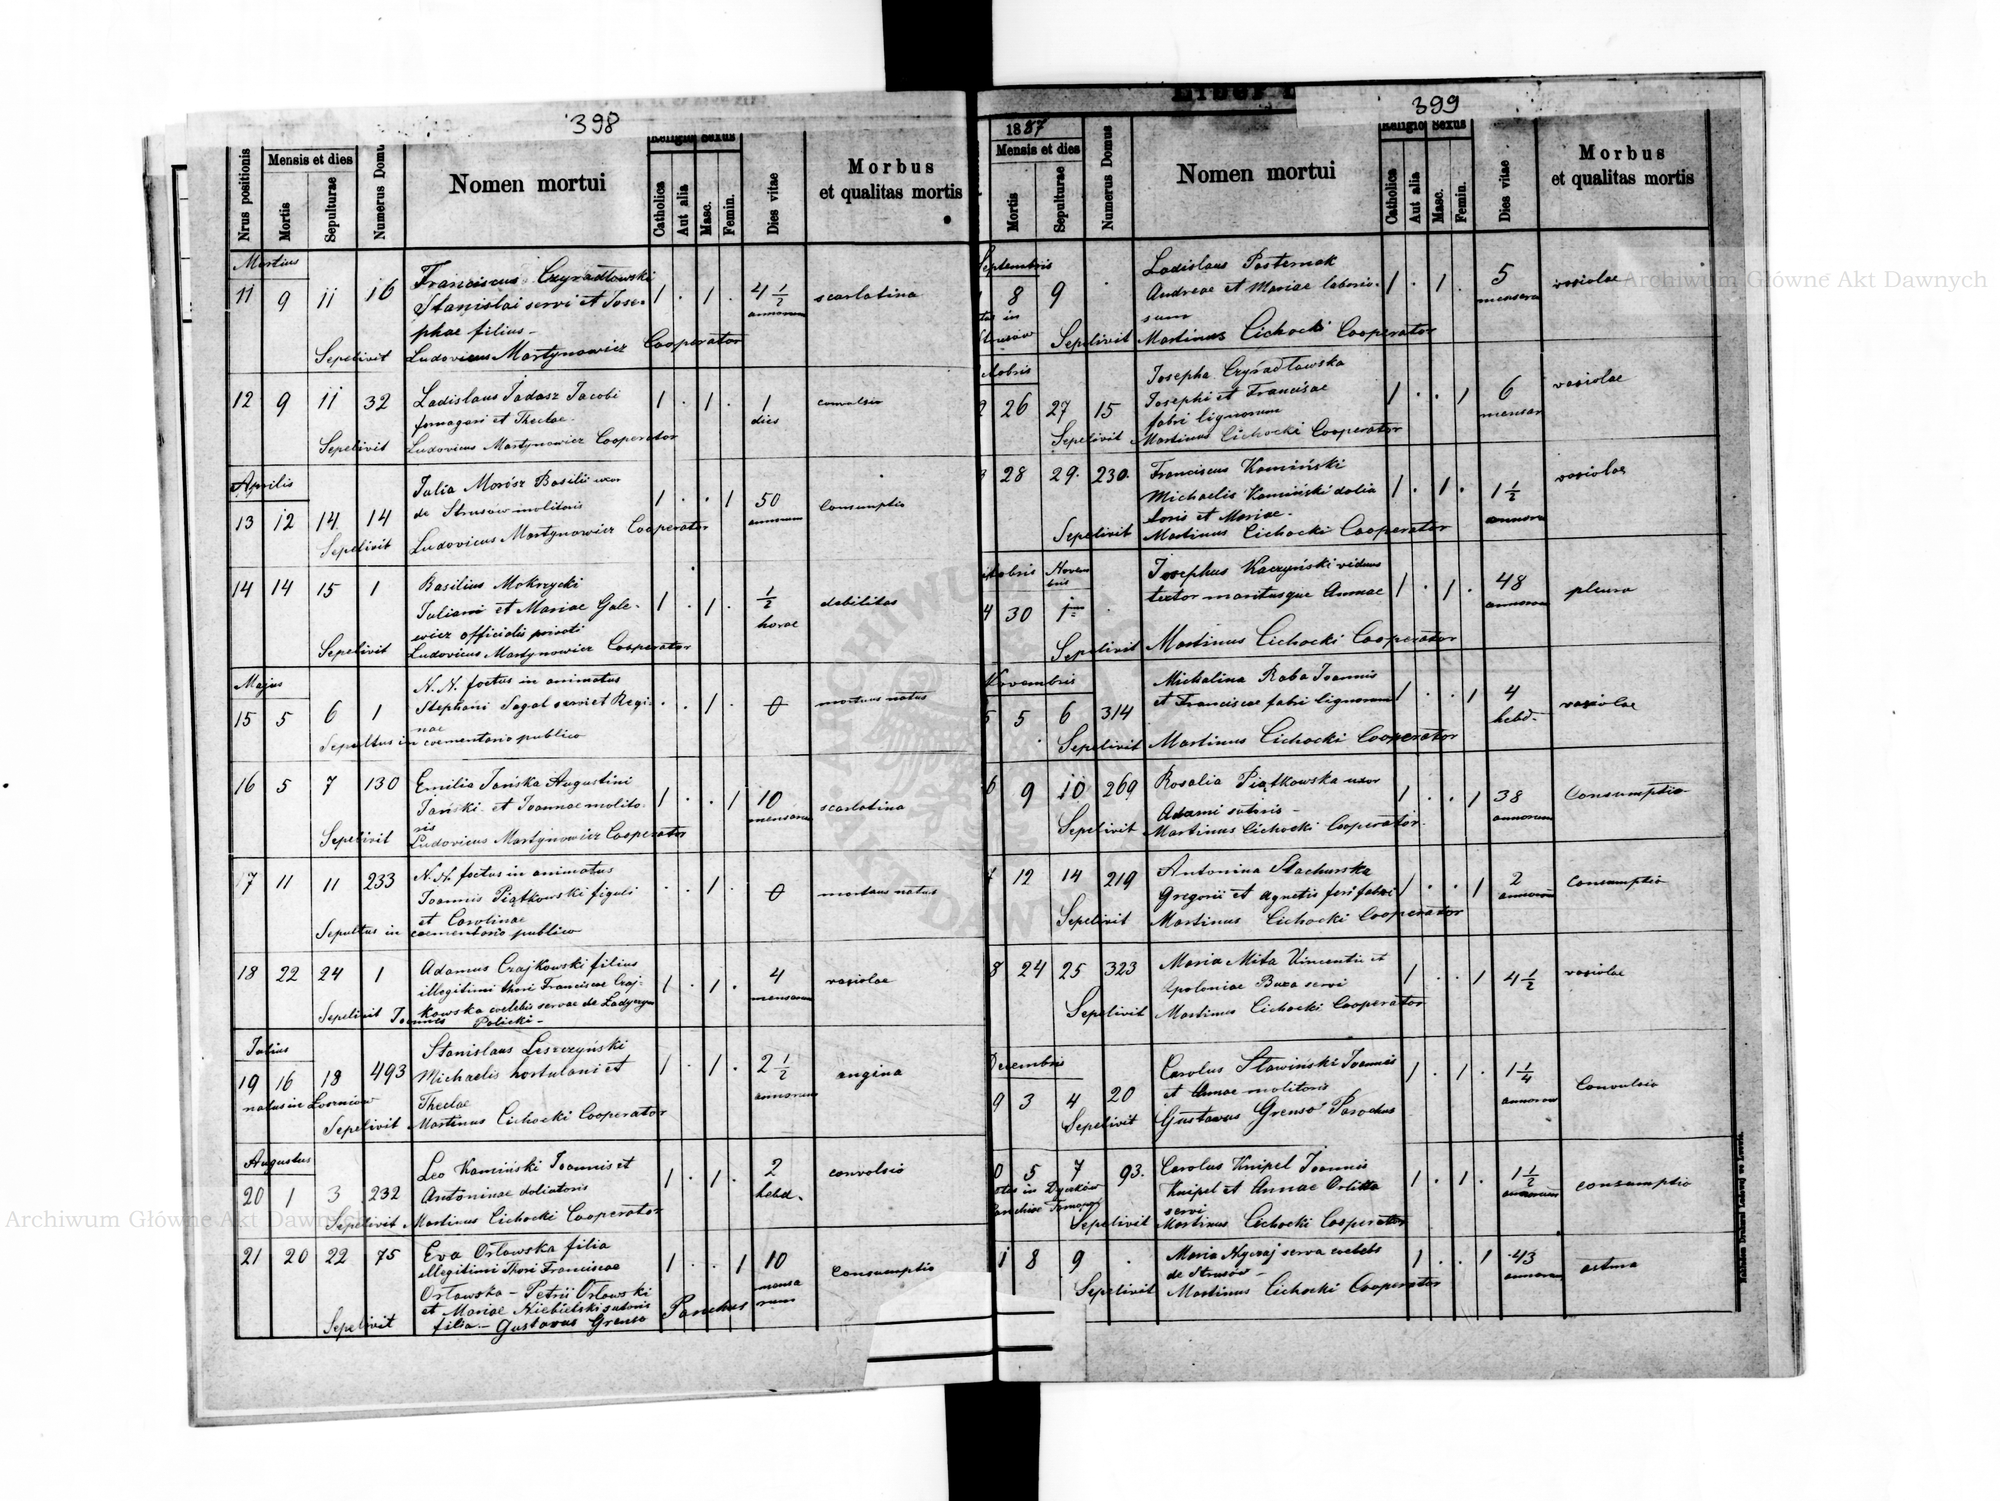 398
Nrus positionis
Mensis et dies
Mortis
Sepulturae
Numerus Domus
Nomen mortui
Religio
Sexus
Catholica
Aut alia
Masc.
Femin.
Dies vitae
Morbus
et qualitas mortis
Martius
11 9 11 16 Franciscus Czyradłowski
Stanislai servi et Jose-
phae filius -
1 . 1 . 4 1/2 annorum scarlatina
Sepelivit Ludovicus Martynowicz Cooperator
12 9 11 32 Ladislaus Jacobi
et Theclae.
1 . 1 . 1 dies
Sepelivit Ludovicus Martynowicz Cooperator
Aprilis
Julia Morósz Basilii uxor
13 12 14 14 de Strusow molitoris
1 . . 1 50 annorum Consumptio
Sepelivit Ludovicus Martynowicz Cooperator
14 14 15 1 Basilius Mokrzycki
Juliani et Mariae Gale-
wicz officialis privati
1 . 1 . 1/2 horae debilitas
Sepelivit Ludovicus Martynowicz Cooperator
Majus
N. N. foetus in animatus
15 5 6 1 Stephani Sagal servi et Regi-
nae
. . 1 . 0 mortuus natus
Sepultus in coementorio publico
16 5 7 130 Emilia Jańska Augustini
Jański et Joannae molito-
ris
1 . . 1 10 mensorum scarlatina
Sepelivit Ludovicus Martynowicz Cooperator
17 11 11 233 N. N. foetus in animatus
Joannis Piątkowski figuli
et Carolinae
. . 1 . 0 mortuus natus
Sepultus in coementorio publico
18 22 24 1 Adamus Czajkowski filius
illegitimi thori Franciscae Czaj-
kowska coelebis servae de Ladyczyn
1 . 1 . 4 mensorum variolae
Sepelivit Joannes Policki -
Julius
Stanislaus Leszczyński
19 16 18 493 Michaelis hortulani et
natus in Łoszniów Theclae
1 . 1 . 2 1/2 annorum angina
Sepelivit Martinus Cichocki Cooperator
Augustus
Leo Kamiński Joannis et
20 1 3 232 Antoninae doliatoris
1 . 1 . 2 hebd. convolsio
Sepelivit Martinus Cichocki Cooperator
21 20 22 75 Eva Orłowska filia
illegitimi Thori Franciscae
Orłowska - Petrii Orłowski
et Mariae Niebielski sutoris
filia. - Gustavus Grenso Parochus
1 . . 1 10 mensorum Consumptio
Sepelivit
399
Liber
1887
Mensis et dies
Mortis
Sepulturae
Numerus Domus
Nomen mortui
Religio
Sexus
Catholica
Aut alia
Masc.
Femin.
Dies vitae
Morbus
et qualitas mortis
Septembris
Ladislaus Pasternak
8 9 . Andreae et Mariae laborio-
sum
1 . 1 . 5 mensorum variolae
Sepelivit Martinus Cichocki Cooperator
Josepha Czyradłowska
26 27 15 Josephi et Franciscae
fabri lignorum
1 . . 1 6 mensorum variolae
Sepelivit Martinus Cichocki Cooperator
28 29. 230. Franciscus Kamiński
Michaelis Kamiński dolia
toris et Mariae.
1 . 1 . 1 1/2 annorum variolae
Sepelivit Martinus Cichocki Cooperator
Novem
bris
Josephus Kaczyński viduus
textor maritusque Annae
4 30 1 . 1 . 1 . 48 annorum pleura
Sepelivit Martinus Cichocki Cooperator
Novembris
Michalina Raba Joannis
5 5 6 314 et Franciscae fabri lignorum
1 . . 1 4 hebd. variolae
Sepelivit Martinus Cichocki Cooperator
6 9 10 269 Rosalia Piątkowska uxor
Adami sutoris -
1 . . 1 38 annorum Consumptio
Sepelivit Martinus Cichocki Cooperator.
12 14 219 Antonina Stachurska
Gregorii et Agnetis ferifabri
1 . . 1 2 annorum Consumptio
Sepelivit Martinus Cichocki Cooperator
8 24 25 323 Maria Mita Vincentii et
Apoloniae Buza servi
1 . . 1 4 1/2 variolae
Sepelivit Martinus Cichocki Cooperator
Decembris
Carolus Sławiński Joannis
9 3 4 20 et Annae molitoris
1 . 1 . 1 1/4 annorum Convulsio
Sepelivit Gustavus Grenso Parochus
0 5 7 93. Carolus Knipel Joannis
Knipel et Annae Orlitta
servi
1 . 1 . 1 1/2 annorum consumptio
Sepelivit Martinus Cichocki Cooperator
1 8 9 . Maria serva coelebs
de Strusów -
1 . . 1 43 annorum astma
Sepelivit Martinus Cichocki Cooperator
Nakładem Drukarni Ludowej we Lwowie.
Archiwum Główne Akt Dawnych
Archiwum Główne Akt Dawnych